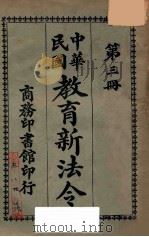 第三冊
中華民國
教育新法令
商務印書館印行